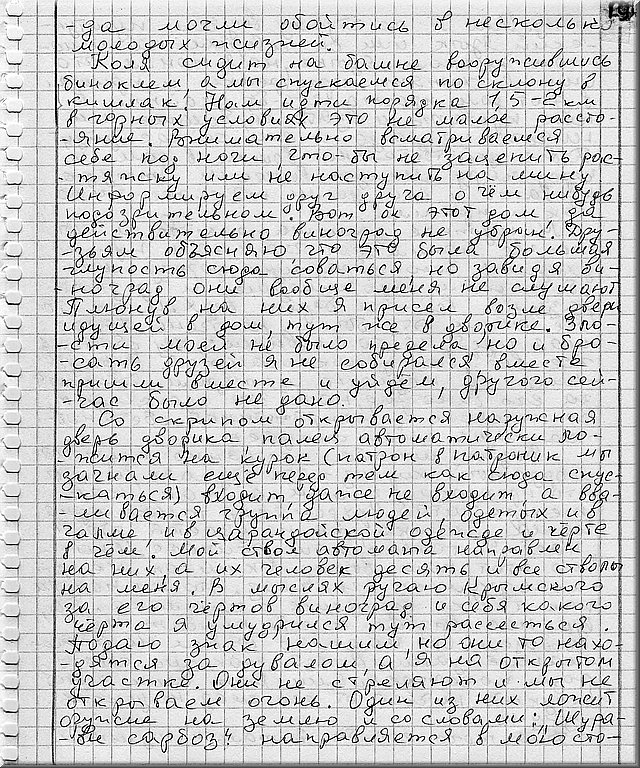 -да могли обойтись в несколько
молодых жизней.
Коля сидит на башне вооружившись
биноклем, а мы спускаемся по склону в
кишлак. Нам идти порядка 1,5-2 км
в горных условиях это не малое рассто-
-яние. Внимательно всматриваемся
себе под ноги, что-бы не зацепить рас-
-тяжку или не наступить на мину
Информируем друг друга о чём нибудь
подозрительном. Вот он этот дом, да
действительно виноград не убран. Дру-
-зьям объясняю, что это была большая
глупость сюда соваться, но завидя ви-
-ноград они вообще меня не слушают
Плюнув на них я присел возле двери
идущей в дом, тут же в дворике. Зло-
-сти моей не было предела, но и бро-
-сать друзей я не собирался, вместе
пришли, вместе и уйдём, другого сей-
-час было не дано.
Со скрипом открывается наружная
дверь дворика палец автоматически ло-
-жится на курок (патрон в патроник мы
загнали ещё перед тем как сюда спус-
-каться) входит, даже не входит, а вва-
-ливается группа людей, одетых и в
чалме, и в царандойской одежде и чёрте
в чём. Мой ствол автомата направлен
на них, а их человек десять и все стволы
на меня. В мыслях ругаю Крымского
за его чёртов виноград и себя какого
чёрта я умудрился тут рассесться.
Подаю знак нашим, но они то нахо-
-дятся за дувалом, а я на открытом
участке. Они не стреляют и мы не
открываем огонь. Один из них ложит
оружие на землю и со словами: „Шура-
-ви сарбоз" направляется в мою сто-